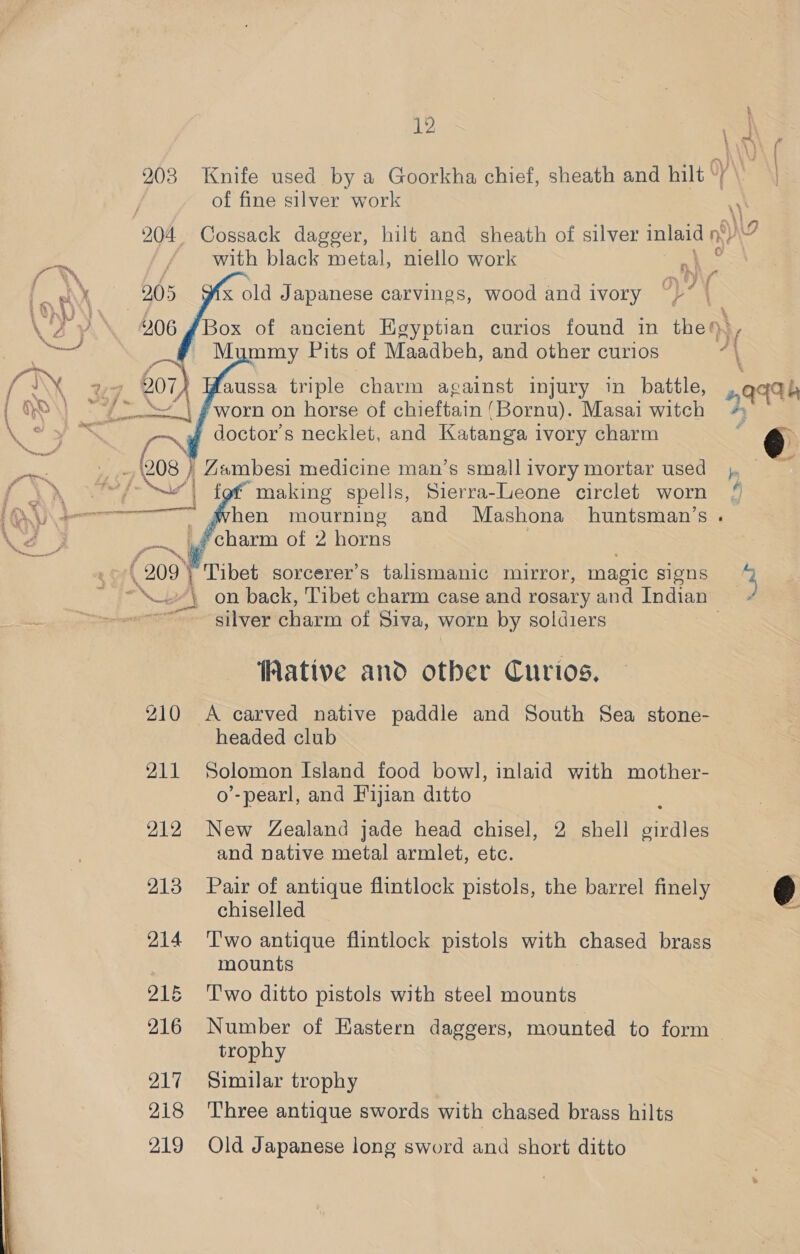 12
203 Knife used by a Goorkha chief, sheath and hilt
of fine silver work
204 Cossack dagger, hilt and sheath of silver inlaid
with black metal, niello work
205 Six old Japanese carvings, wood and ivory
206 Box of ancient Egyptian curios found in the
Mummy Pits of Maadbeh, and other curios
207 Haussa triple charm against injury in battle,
worn on horse of chieftain (Bornu). Masai witch
doctor's necklet, and Katanga ivory charm
208 Zambesi medicine man's small ivory mortar used
for making spells, Sierra-Leone circlet worn
when mourning and Mashona huntsman's
charm of 2 horns
209 Tibet sorcerer's talismanic mirror, magic signs
on back, Tibet charm case and rosary and Indian
silver charm of Siva, worn by soldiers
Native and other Curios.
210 A carved native paddle and South Sea stone-
headed club
211 Solomon Island food bowl, inlaid with mother-
o'-pearl, and Fijian ditto
212 New Zealand jade head chisel, 2 shell girdles
and native metal armlet, etc.
213 Pair of antique flintlock pistols, the barrel finely
chiselled
214 Two antique flintlock pistols with chased brass
mounts
215 Two ditto pistols with steel mounts
216 Number of Eastern daggers, mounted to form
trophy
217 Similar trophy
218 Three antique swords with chased brass hilts
219 Old Japanese long sword and short ditto